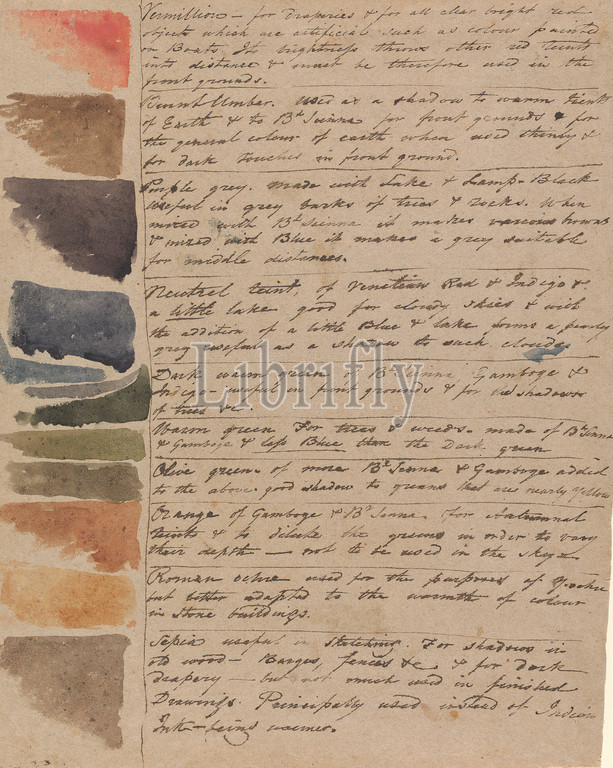 Vermillion – for draperies & for all clear bright red
objects which are artificial such as colour painted
on Boats. Its brightness throws other red teints
into distance & must be therefore used in the
front grounds.
Burnt Umber. used as a shadow to warm tients
of Earth & to Bt Sienna for front grounds & for
the general colour of earth when used thinly &
for dark touches in front ground.
Purple grey. made with Lake & Lamp-Black
useful in grey barks of trees & rocks. When
mixed with Bt Seinna it makes various browns
& mixed with Blue it makes a grey suitable
for middle distances.
Neutrel teint, of Venetian Red & Indigo &
a little lake good for cloudy skies & with
the addition of a little Blue & lake forms a pearly
grey useful as a shadow to such clouds
Dark warm green Bt Sienna Gamboge &
Indigo useful in front grounds & for shadows
of trees &c.
Warm green For trees & weeds. made of Bt Senna
& Gamboge & less Blue than the Dark green
Olive green of more Bt Senna & Gamboge added
to the above good shadow to greens that are nearly yellow
Orange of Gamboge & Bt Senna. for Autumnal
teints & to dilute the greens in order to vary
their depth – not to be used in the skys
Roman ochre used for the purposes of Y. ochre
but better adapted to the warmth of colour
in stone buildings.
Sepia useful in sketching. For shadows in
old wood – Barges, fences &c & for dark
drapery – but not much used in finished
Drawings. Principally used instead of Indian
Ink – being warmer.
Librifly